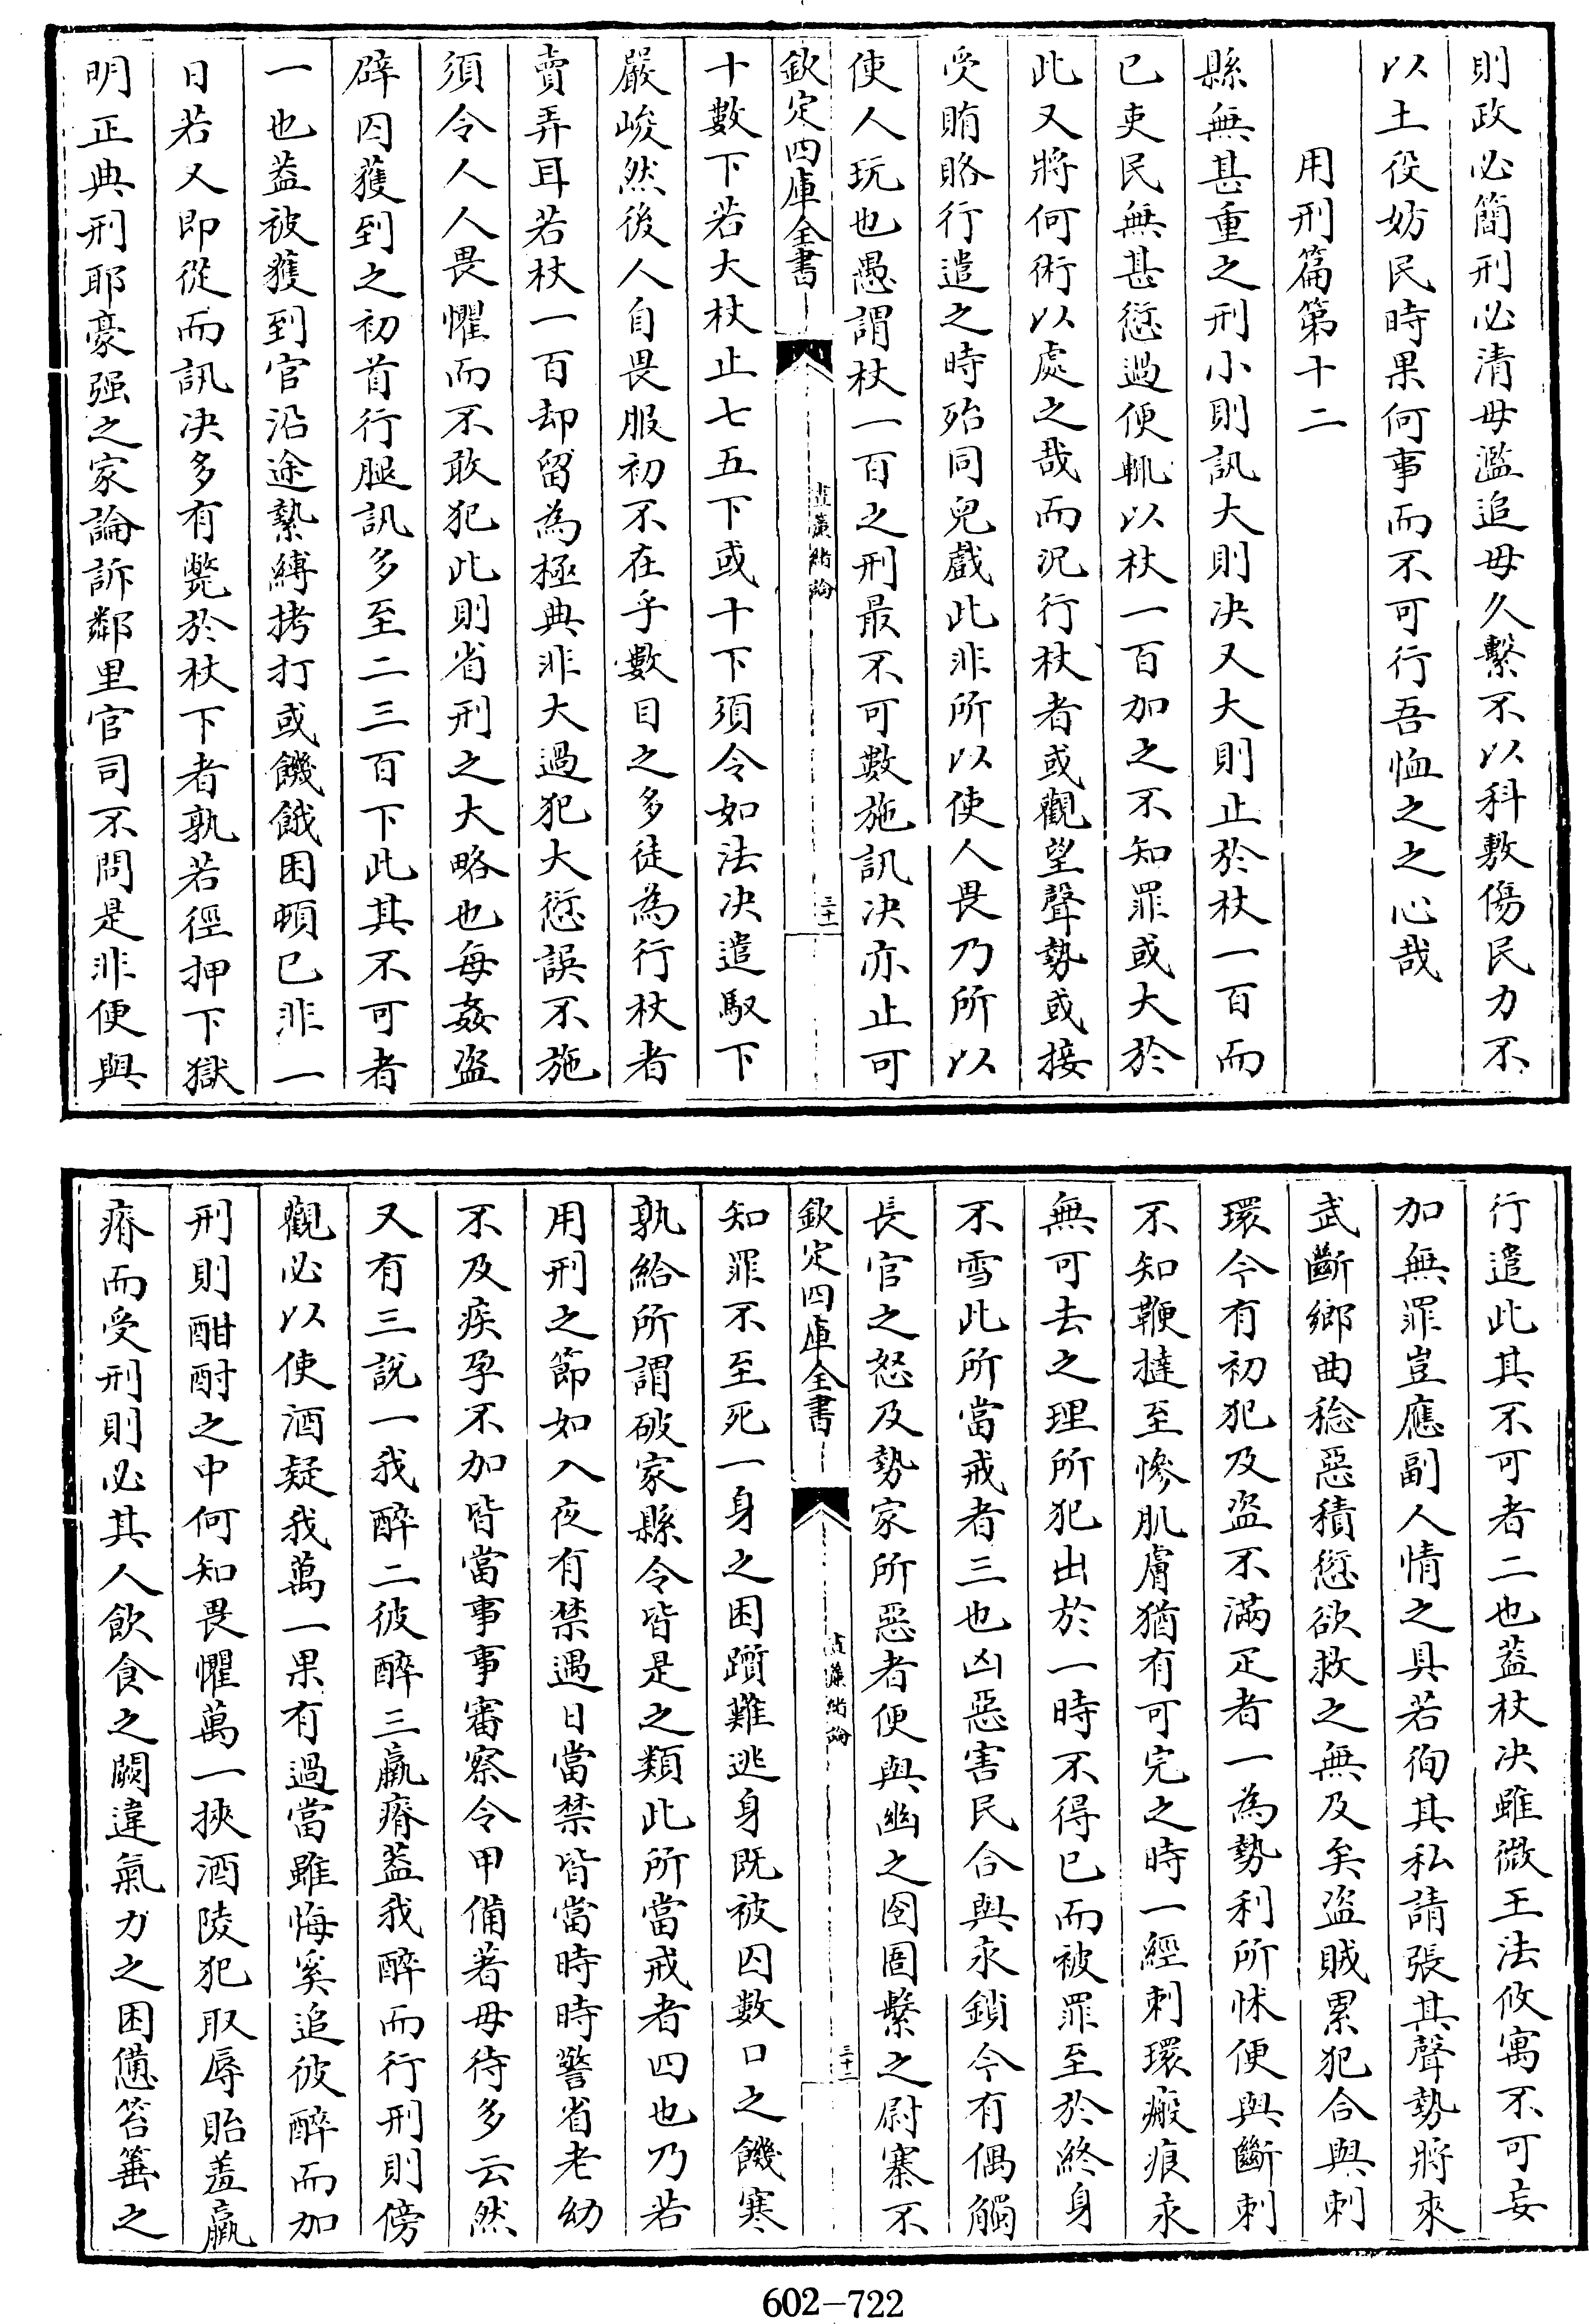 則政必簡刑必清毋濫追毋久繫不以科敷傷民力不
以土役妨民時果何事而不可行吾恤之之心哉
用刑篇第十二
縣無甚重之刑小則訊大則決又大則止於杖一百而
已吏民無甚愆過便輒以杖一百加之不知罪或大於
此又將何術以處之哉而況行杖者或觀望聲勢或接
受賄賂行遣之時殆同兒戲此非所以使人畏乃所以
使人玩也愚謂杖一百之刑最不可數施訊决亦止可
欽定四庫全書
晝簾緒論
三十一
十數下若大杖止七五下或十下須令如法决遣馭下
嚴峻然後人自畏服初不在乎數目之多徒為行杖者
賣弄耳若杖一百却留為極典非大過犯大愆誤不施
須令人人畏懼而不敢犯此則省刑之大略也每姦盗
辟囚獲到之初首行腿訊多至二三百下此其不可者
一也葢被獲到官沿途縶縛拷打或饑餓困頓已非一
日若又即從而訊决多有斃於杖下者孰若徑押下獄
明正典刑耶豪强之家論訴鄰里官司不問是非便與
行遣此其不可者二也葢杖决雖微王法攸寓不可妄
加無罪豈應副人情之具若徇其私請張其聲勢將來
武斷鄉曲稔惡積愆欲救之無及矣盗賊累犯合與刺
環今有初犯及盗不滿疋者一為勢利所怵便與斷刺
不知鞭撻至慘肌膚猶有可完之時一經刺環瘢痕永
無可去之理所犯出於一時不得已而被罪至於終身
不雪此所當戒者三也凶惡害民合與永鎖今有偶觸
長官之怒及勢家所惡者便與幽之囹圄繫之尉寨不
欽定四庫全書
晝簾緒論
三十二
知罪不至死一身之困躓難逃身既被囚數口之饑寒
孰給所謂破家縣令皆是之類此所當戒者四也乃若
用刑之節如入夜有禁遇日當禁皆當時時警省老幼
不及疾孕不加皆當事事審察令甲備著毋待多云然
又有三說一我醉二彼醉三羸瘠葢我醉而行刑則傍
觀必以使酒疑我萬一果有過當雖悔奚追彼醉而加
刑則酣酗之中何知畏懼萬一挾酒陵犯取辱貽羞羸
瘠而受刑則必其人飲食之闕違氣力之困憊笞箠之
602-722